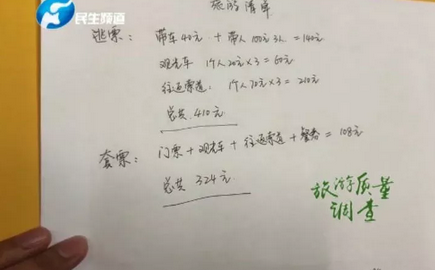 民生频道
旅游清单
逃票： 带车40元 + 带人100元3人 = 140元
观光车 1个人20元×3 = 60元
往返索道： 1个人70元×3 = 210元
总共 410元
套票： 门票 + 观光车 + 往返索道 + 餐券 = 108元
总共 324元
旅游质量
调查